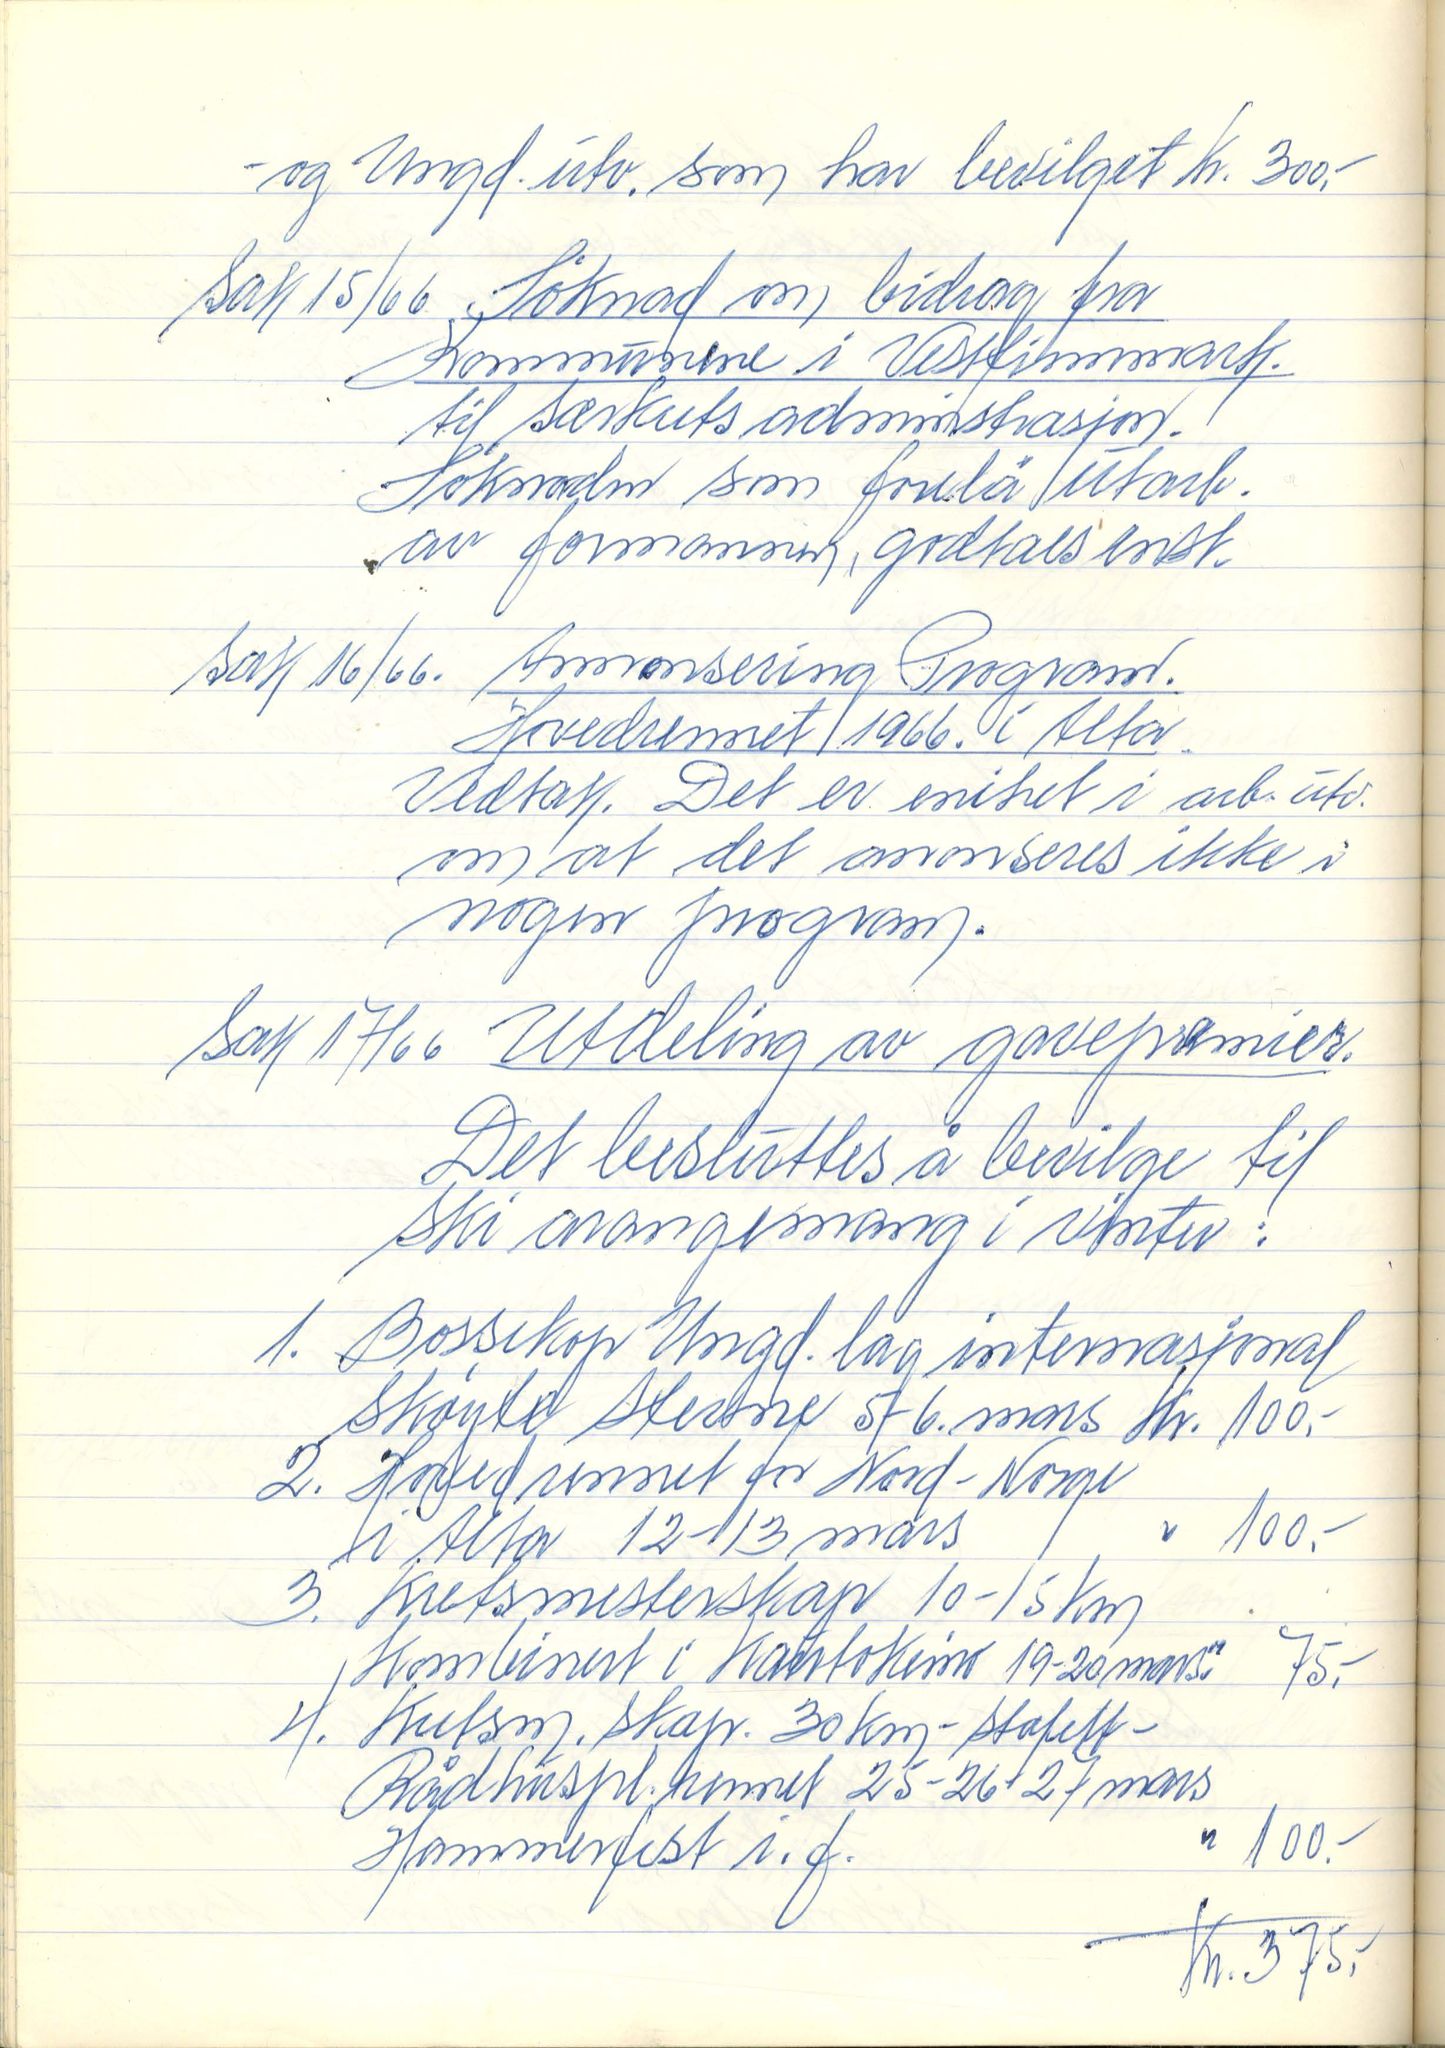 - og Ungd. utv. som har bevilget kr. 300,-
Sak 15/66. Söknad om bidrag fra
Kommunene i Vestfinnmark.
til særkretsadministrasjon.
Söknaden som forelå utarb.
av formannen, godtaes enst.
Sak 16/66. Annonsering Program.
Hovedrennet 1966. i Alta.
Vedtak. Det er enihet i arb. utv.
om at det anonseres ikke i
nogen program.
Sak 17/66 Utdeling av gavepremier.
Det besluttes å bevilge til
Ski arangemang i vinter:
1. Bossekop Ungd. lag internasjonal
Skøyte stevne 5-6. mars Kr. 100,-
2. Hovedrennet for Nord-Norge
i Alta 12-13 mars " 100.-
3. Kretsmesterskap 10-15 km
Kombinert i Kautokeino 19-20 mars " 75,-
4. Kretsm. skap. 30 km - stafett -
Rådhuspl. rennet 25-26-27 mars
Hammerfest i. f. " 100.-
Kr. 375,-